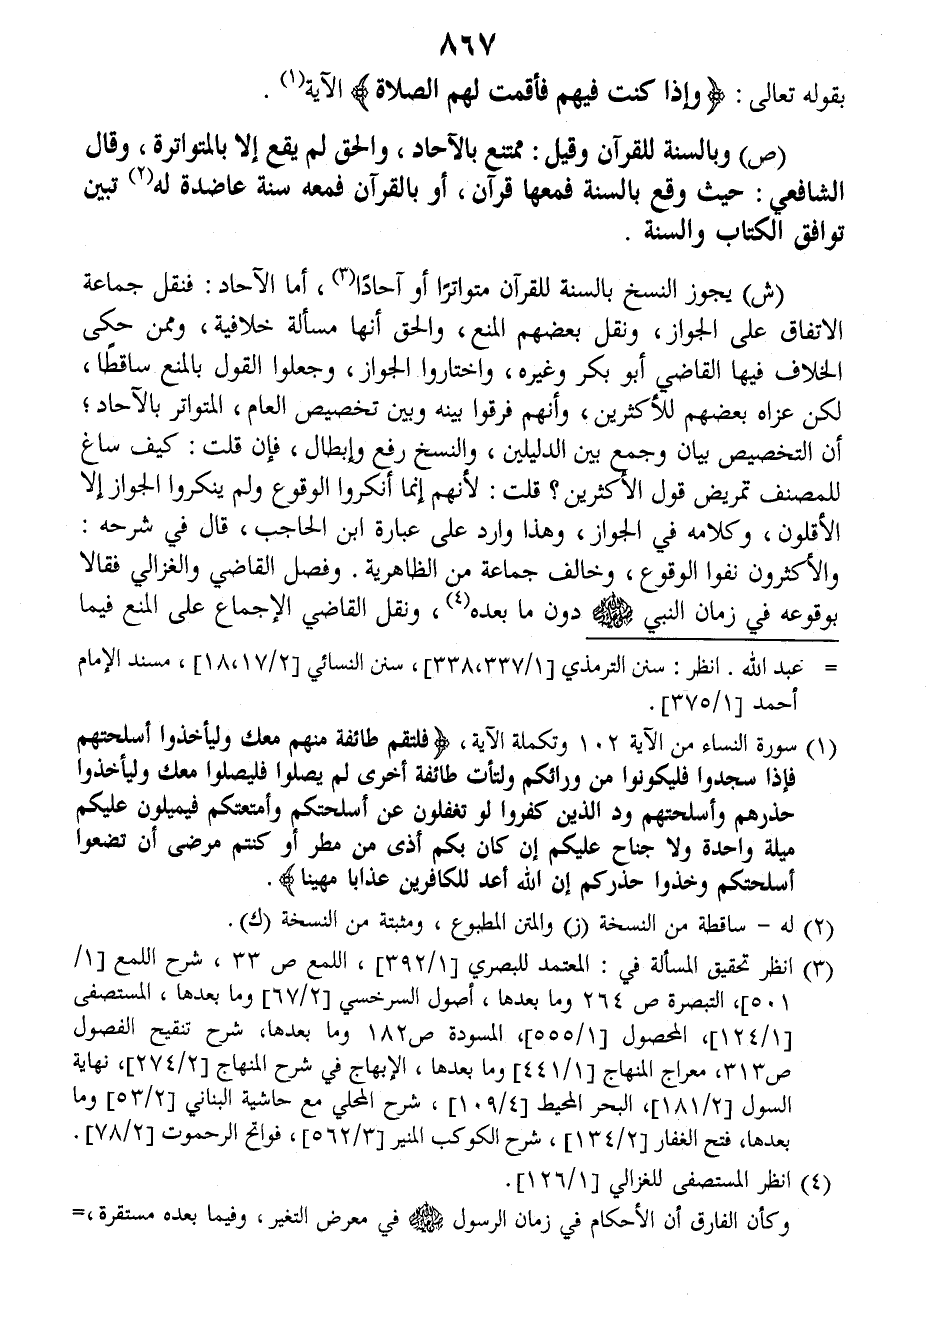 ٨٦٧
بقوله تعالى : ﴿ وإذا كنت فيهم فأقمت لهم الصلاة ﴾ الآية(١) .
(ص) وبالسنة للقرآن وقيل : ممتنع بالآحاد ، والحق لم يقع إلا بالمتواترة ، وقال
الشافعي : حيث وقع بالسنة فمعها قرآن ، أو بالقرآن فمعه سنة عاضدة له(٢) تبين
توافق الكتاب والسنة .
(ش) يجوز النسخ بالسنة للقرآن متواترًا أو آحادًا(٣) ، أما الآحاد : فنقل جماعة
الاتفاق على الجواز ، ونقل بعضهم المنع ، والحق أنها مسألة خلافية ، وممن حكى
الخلاف فيها القاضي أبو بكر وغيره ، واختاروا الجواز ، وجعلوا القول بالمنع ساقطًا ،
لكن عزاه بعضهم للأكثرين ، وأنهم فرقوا بينه وبين تخصيص العام ، المتواتر بالآحاد ؛
أن التخصيص بيان وجمع بين الدليلين ، والنسخ رفع وإبطال ، فإن قلت : كيف ساغ
للمصنف تمريض قول الأكثرين ؟ قلت : لأنهم إنما أنكروا الوقوع ولم ينكروا الجواز إلا
الأقلون ، وكلامه في الجواز ، وهذا وارد على عبارة ابن الحاجب ، قال في شرحه :
والأكثرون نفوا الوقوع ، وخالف جماعة من الظاهرية . وفصل القاضي والغزالي فقالا
بوقوعه في زمان النبي ﷺ دون ما بعده(٤) ، ونقل القاضي الإجماع على المنع فيما
= عبد الله . انظر : سنن الترمذي [٣٣٨،٣٣٧/١] ، سنن النسائي [١٨،١٧/٢] ، مسند الإمام
أحمد [٣٧٥/١] .
(١) سورة النساء من الآية ١٠٢ وتكملة الآية ، ﴿ فلتقم طائفة منهم معك وليأخذوا أسلحتهم
فإذا سجدوا فليكونوا من ورائكم ولتأت طائفة أخرى لم يصلوا فليصلوا معك وليأخذوا
حذرهم وأسلحتهم ود الذين كفروا لو تغفلون عن أسلحتكم وأمتعتكم فيميلون عليكم
ميلة واحدة ولا جناح عليكم إن كان بكم أذى من مطر أو كنتم مرضى أن تضعوا
أسلحتكم وخذوا حذركم إن الله أعد للكافرين عذابا مهينا ﴾ .
(٢) له - ساقطة من النسخة (ز) والمتن المطبوع ، ومثبتة من النسخة (ك) .
(٣) انظر تحقيق المسألة في : المعتمد للبصري [٣٩٢/١] ، اللمع ص ٣٣ ، شرح اللمع [١/
٥٠١] ، التبصرة ص ٢٦٤ وما بعدها ، أصول السرخسي [٦٧/٢] وما بعدها ، المستصفى
[١٢٤/١] ، المحصول [٥٥٥/١] ، المسودة ص١٨٢ وما بعدها، شرح تنقيح الفصول
ص٣١٣، معراج المنهاج [٤٤١/١] وما بعدها ، الإبهاج في شرح المنهاج [٢٧٤/٢] ، نهاية
السول [١٨١/٢] ، البحر المحيط [١٠٩/٤] ، شرح المحلي مع حاشية البناني [٥٣/٢] وما
بعدها، فتح الغفار [١٣٤/٢] ، شرح الكوكب المنير [٥٦٢/٣] ، فواتح الرحموت [٧٨/٢] .
(٤) انظر المستصفى للغزالي [١٢٦/١] .
وكأن الفارق أن الأحكام في زمان الرسول ﷺ في معرض التغير ، وفيما بعده مستقرة ،=